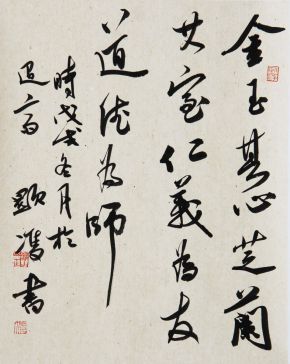 金玉其心芝蘭
其室仁義為友
道德為師
時戊戌冬月於
書